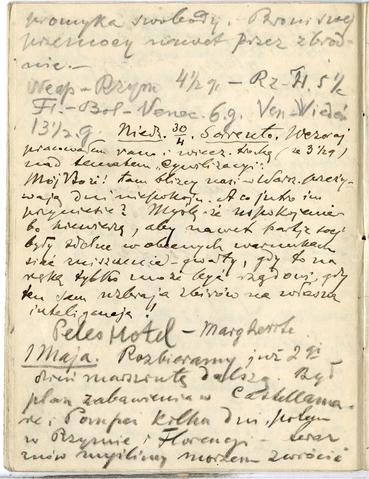 promyka swobody. Broni swej
przemocy nawet przez zbrod-
nie.—
Neap—Rzym 4½ g.— Rz—Fl. 5½
Fl.—Bol—Venec. 6 g. Ven—Wiedeń
13½ g. Niedz. 30/4 Sorento. Wczoraj
pracowałem rano i wiecz. trochę (ze 3½ g)
nad tematem „Cywilizacyi".
Mój Boże! tam blizcy nasi w Warsz. przeży-
wają dni niepokoju. A co jutro im
przyniesie? Myślę że uspokojenie
bo nie wierzę, aby nawet partje socj
były zdolne w obecnych warunkach
siać zniszczenie— gwałty, gdy to na
rękę tylko może być rządowi, gdy
ten sam uzbraja zbirów na własną
inteligencją!
Peles Hotel — Margherite
1 Maja. Rozbieramy już 2gi—
dzień marszrutę dalszą. Był
plan zabawienia w Castellama-
re i Pompei kilka dni, potym
w Rzymie i Florencji — teraz
znów myślimy morzem zwrócić